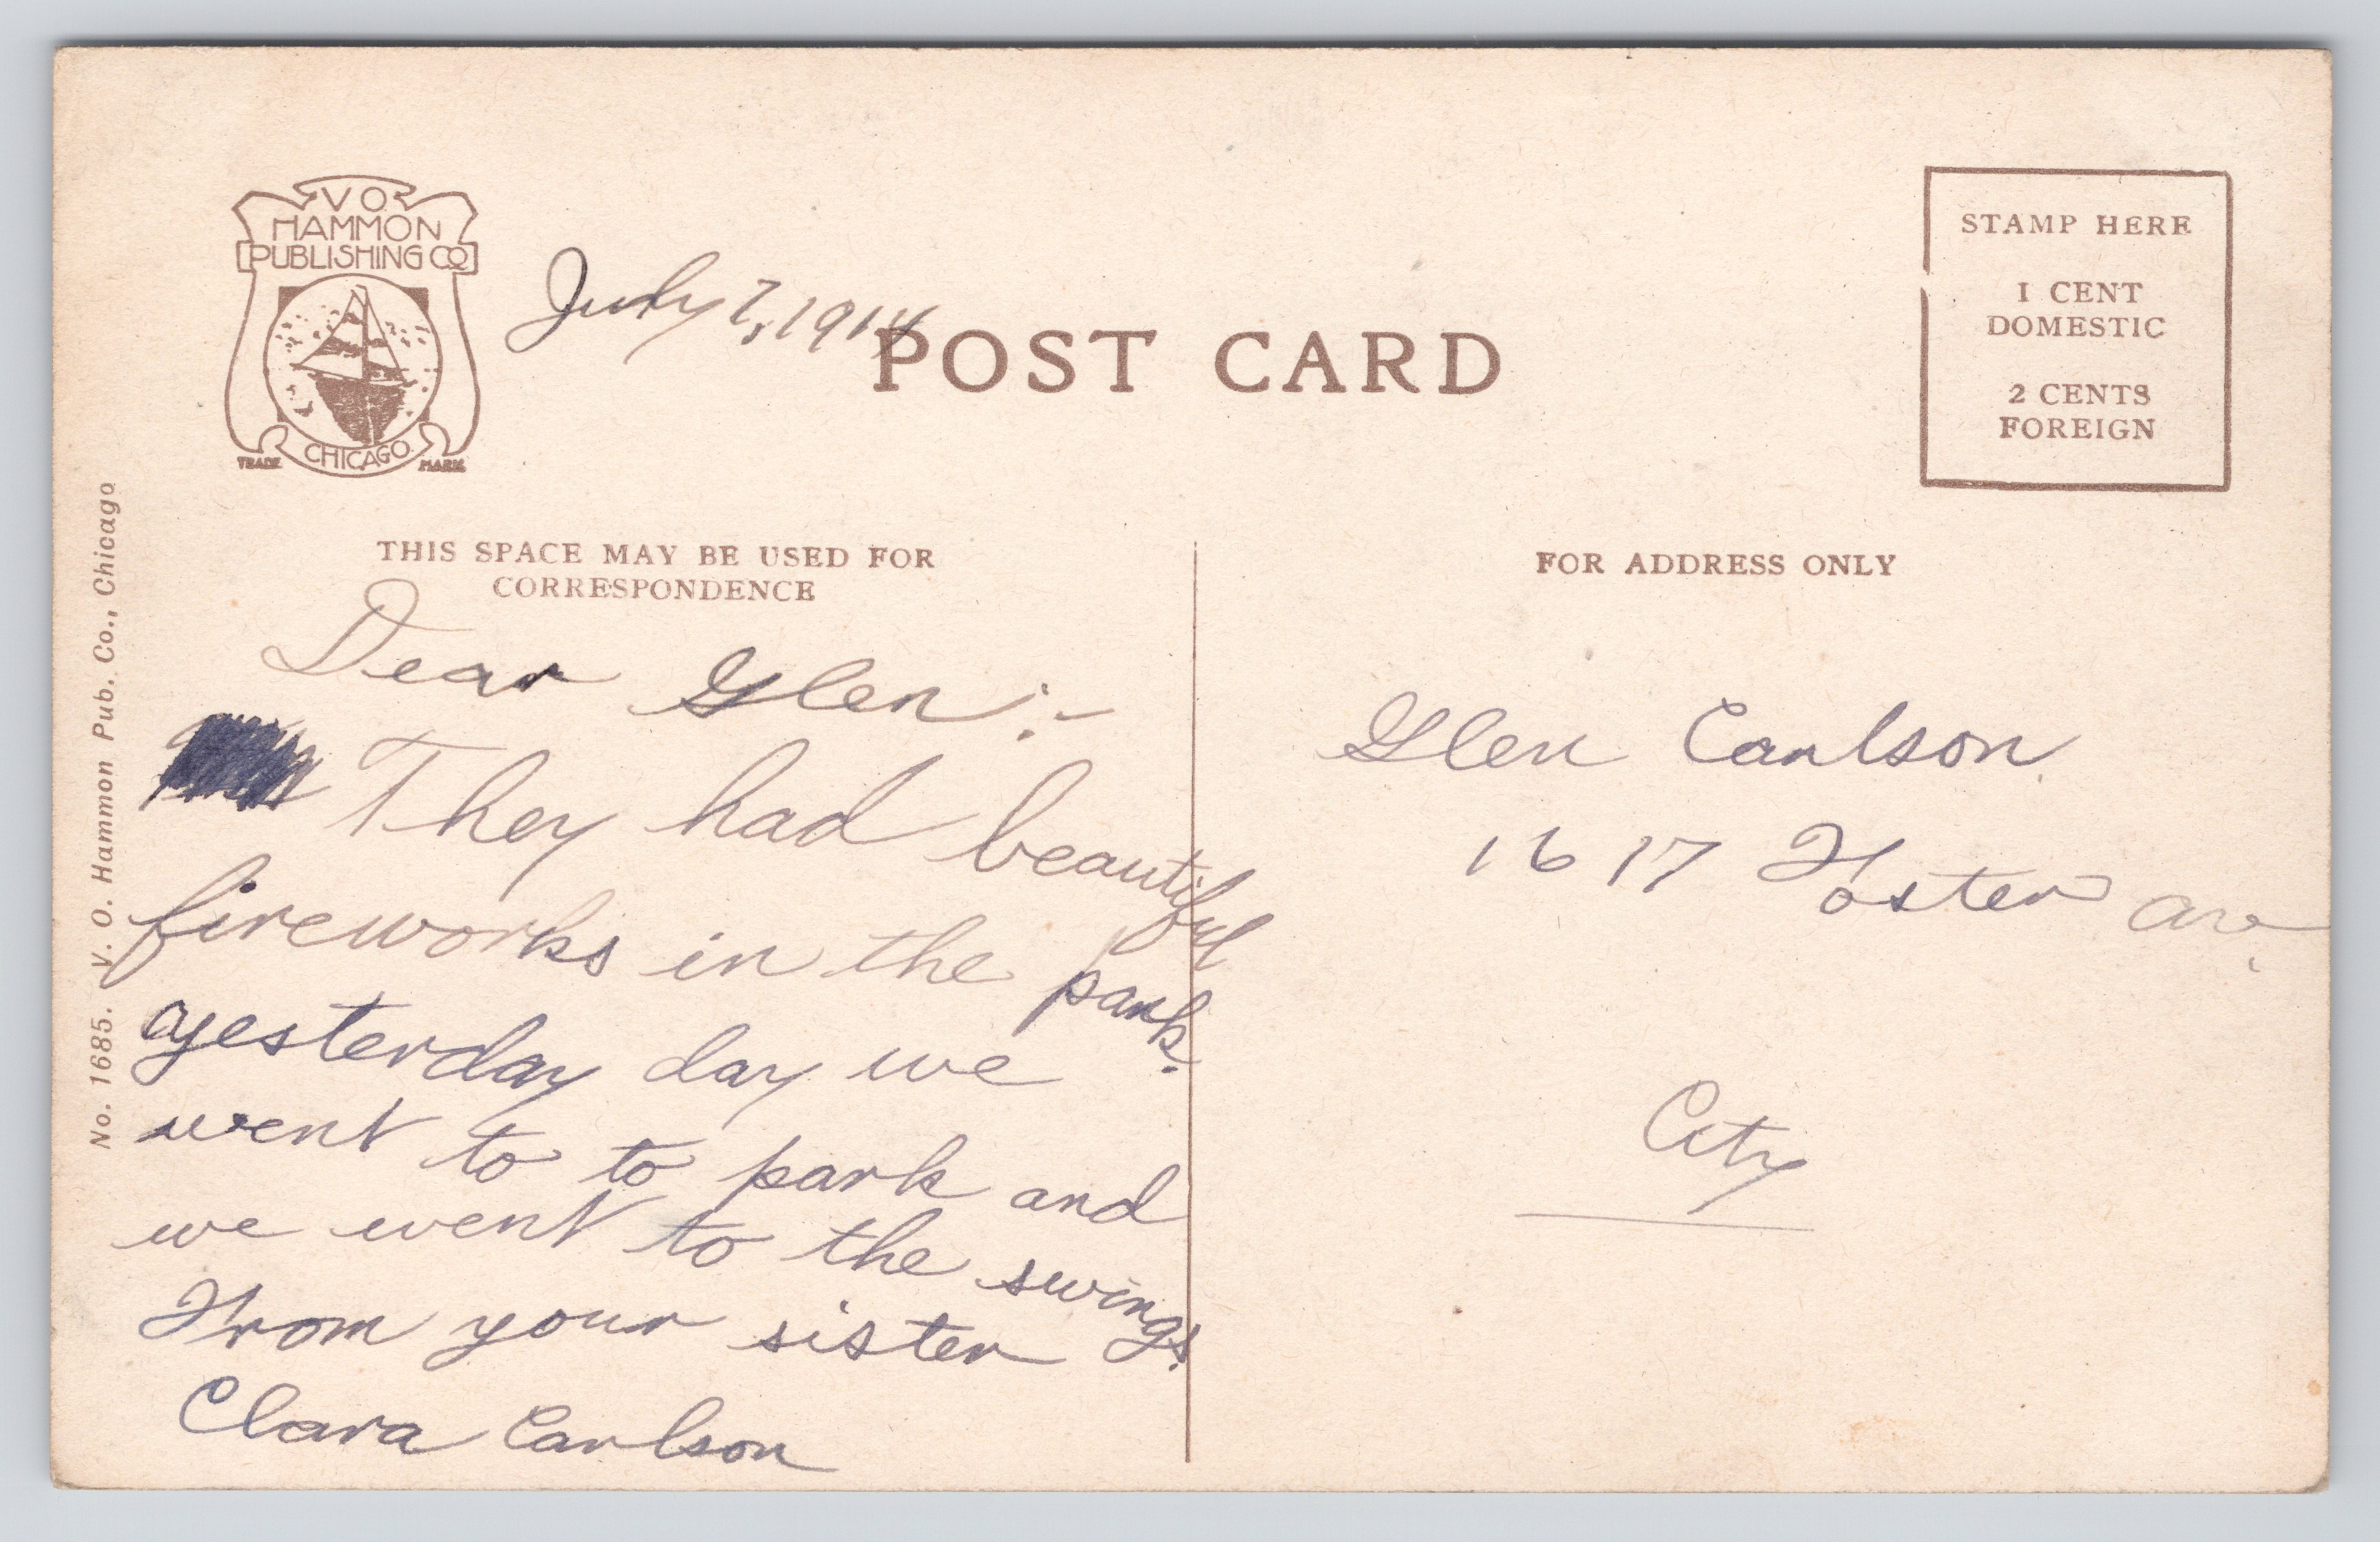 V O
HAMMON
PUBLISHING CO
CHICAGO
TRADE MARK
July 7, 1914
POST CARD
STAMP HERE
1 CENT
DOMESTIC
2 CENTS
FOREIGN
THIS SPACE MAY BE USED FOR
CORRESPONDENCE
Dear Glen:-
They had beautiful
fireworks in the park.
yesterday day we
went to to park and
we went to the swings.
From your sister
Clara Carlson
FOR ADDRESS ONLY
Glen Carlson
1617 Foster ave.
City
No. 1685. V. O. Hammon Pub. Co., Chicago